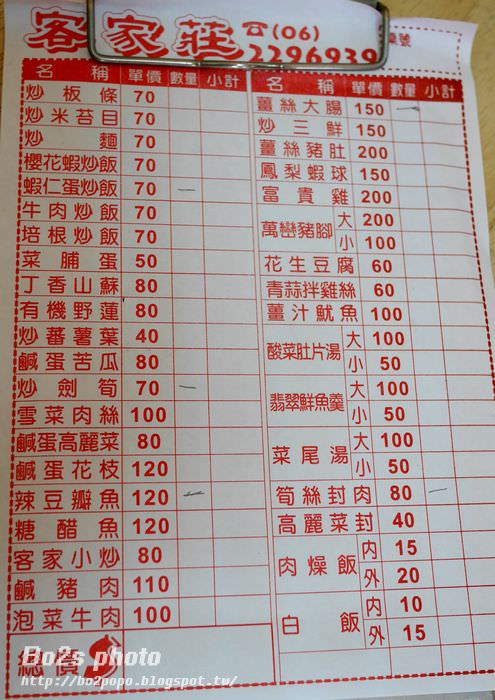 客家莊 ☎(06) 2296939
桌號
名稱 單價 數量 小計
炒板條 70
炒米苔目 70
炒麵 70
櫻花蝦炒飯 70
蝦仁蛋炒飯 70
牛肉炒飯 70
培根炒飯 70
菜脯蛋 50
丁香山蘇 80
有機野蓮 80
炒蕃薯葉 40
鹹蛋苦瓜 80
炒劍筍 70
雪菜肉絲 100
鹹蛋高麗菜 80
鹹蛋花枝 120
辣豆瓣魚 120
糖醋魚 120
客家小炒 80
鹹豬肉 110
泡菜牛肉 100
總價
名稱 單價 數量 小計
薑絲大腸 150
炒三鮮 150
薑絲豬肚 200
鳳梨蝦球 150
富貴雞 200
萬巒豬腳 大 200
小 100
花生豆腐 60
青蒜拌雞絲 60
薑汁魷魚 100
酸菜肚片湯 大 100
小 50
翡翠鮮魚羹 大 100
小 50
菜尾湯 大 100
小 50
筍絲封肉 80
高麗菜封 40
肉燥飯 內 15
外 20
白飯 內 10
外 15
Bo2s photo
http://bo2popo.blogspot.tw/